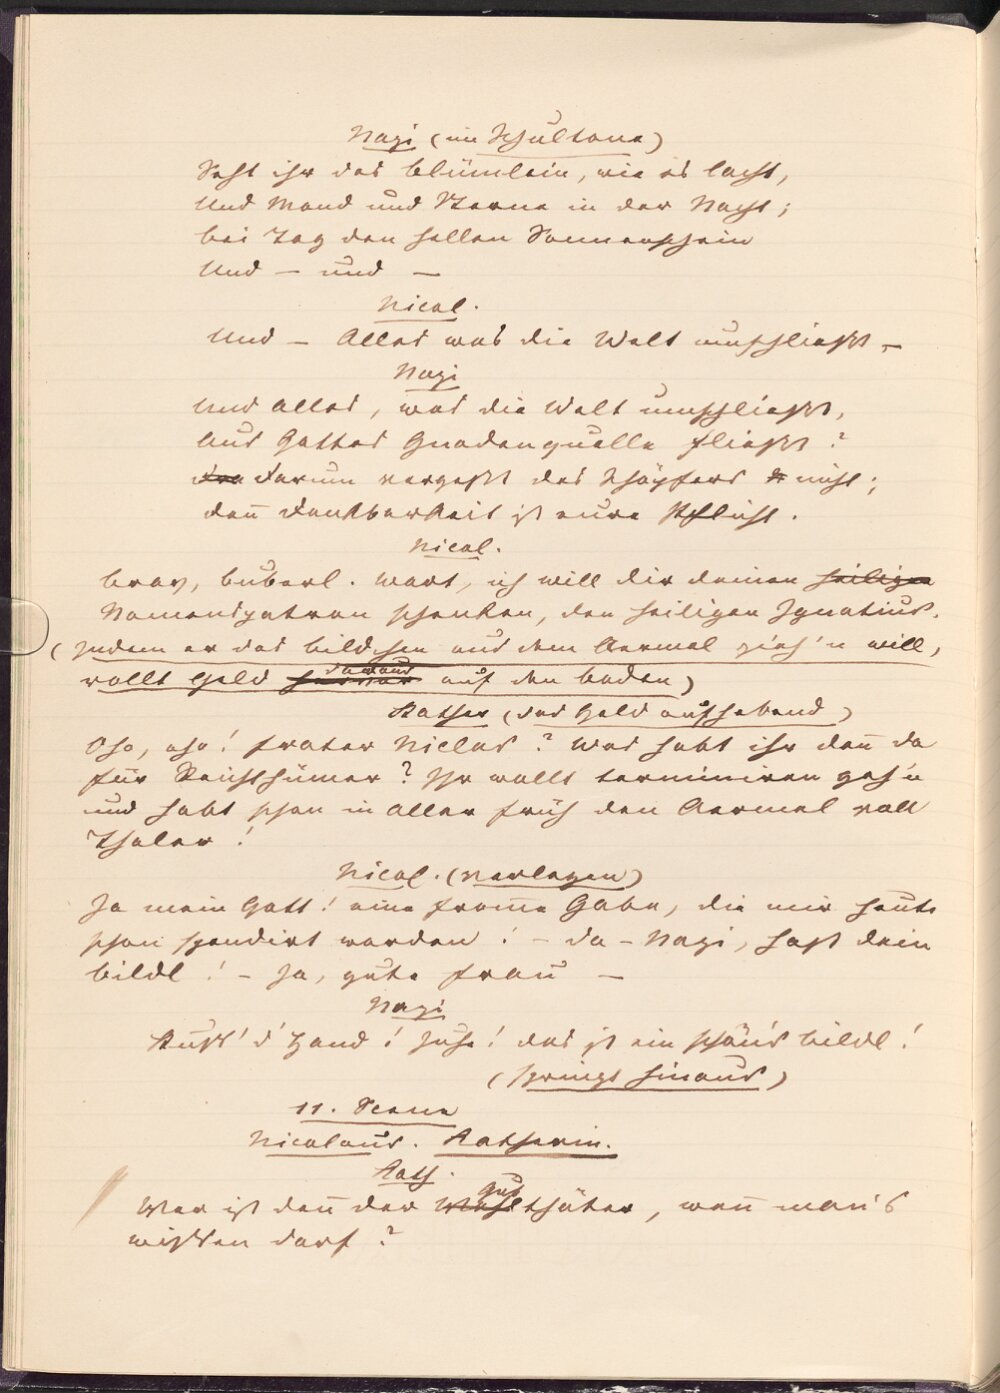 Nazi (im Schultone)
Seht ihr das Blümlein, wie es lacht,
Und Mond und Sterne in der Nacht;
bei Tag den hellen Sonnenschein
Und – und –
Nicol.
Und – Alles was die Welt umschließt, –
Nazi
Und alles, was die Welt umschließt,
Aus Gottes Gnadenquelle fließt?
darum vergeßt des Schöpfers nicht;
den̄ Dankbarkeit ist eure Pflicht.
Nicol.
brav, buberl. Wart, ich will dir deinen heiligen
Namenspatron schenken, den heiligen Ignatius.
(Indem er das bildchen aus dem Aermel zieh'n will,
rollt Geld daraus auf den boden)
Kather (das Geld aufhebend)
Oho, oho! Frater Niclas? Was habt ihr den̄ da
für Reichthümer? Ihr wollt terminiren geh'n
und habt schon in aller früh den Aermel voll
Thaler!
Nicol. (verlegen)
Ja mein Gott! eine from̄e Gabe, die mir heute
schon spendirt worden! – da – Nazi, hast dein
bildl! – Ja, gute Frau –
Nazi
Küß' d' Hand! Juhe! das ist ein schön's bildl!
(springt hinaus)
11. Scene
Nicolaus. Katharin.
Kath.
Wer ist den̄ der gut
Wohlthäter, wen̄ man's
wissen darf?